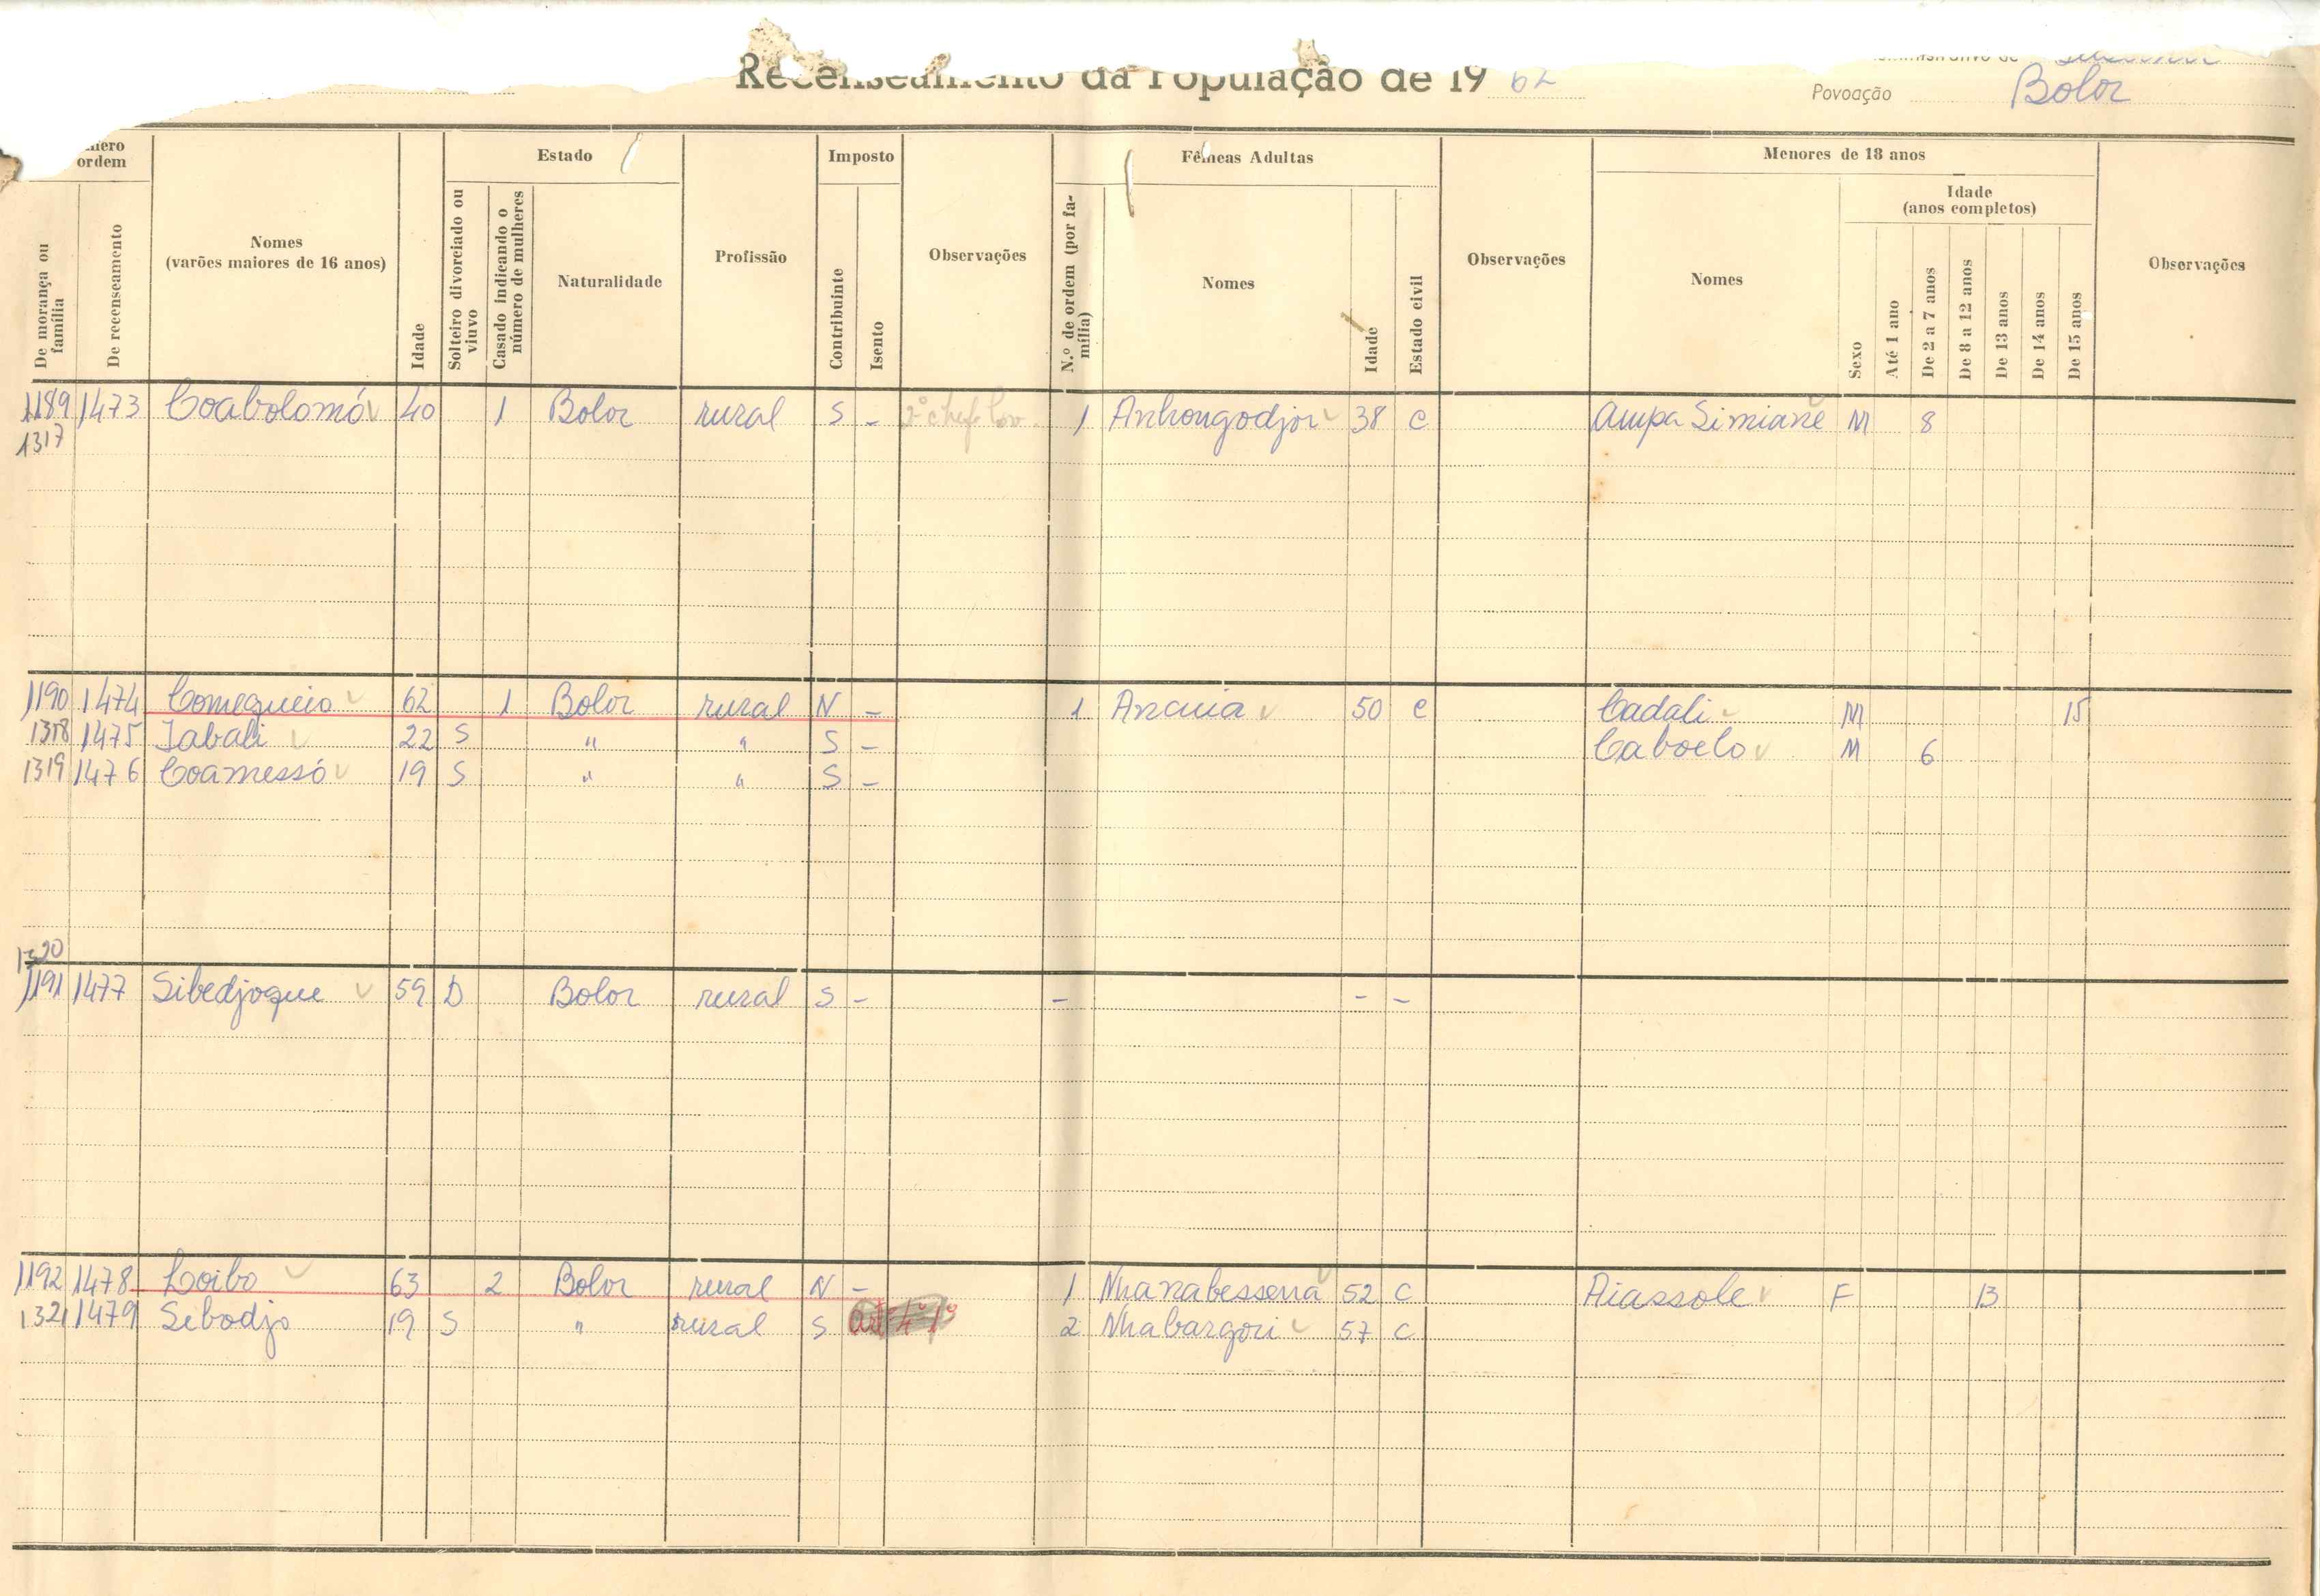 Recenseamento da População de 19 62
Povoação Bolor
ordem
Estado
Imposto
Fêmeas Adultas
Menores de 18 anos
De morança ou família
De recenseamento
Nomes
(varões maiores de 16 anos)
Idade
Solteiro divorciado ou viuvo
Casado indicando o número de mulheres
Naturalidade
Profissão
Contribuinte
Isento
Observações
N.º de ordem (por família)
Nomes
Idade
Estado civil
Observações
Nomes
Sexo
Idade
(anos completos)
Até 1 ano
De 2 a 7 anos
De 8 a 12 anos
De 13 anos
De 14 anos
De 15 anos
Observações
1189 1473 Coabolomó 40 1 Bolor rural S - 2º chefe 1 Anhongodjor 38 C Aupa Simiane M 8
1317
1190 1474 Comequeio 62 1 Bolor rural N - 1 50 C Cadali M 15
1318 1475 Jabali 22 S " " S - Caboelo M 6
1319 1476 Coamessó 19 S " " S -
1320
1191 1477 Sibedjoque 59 D Bolor rural S - - - -
1192 1478 Loibo 63 2 Bolor rural N - 1 Nhanabessena 52 C Aiassole F 13
1321 1479 Sebodjo 19 S " rural S 2 Nhabargori 57 C